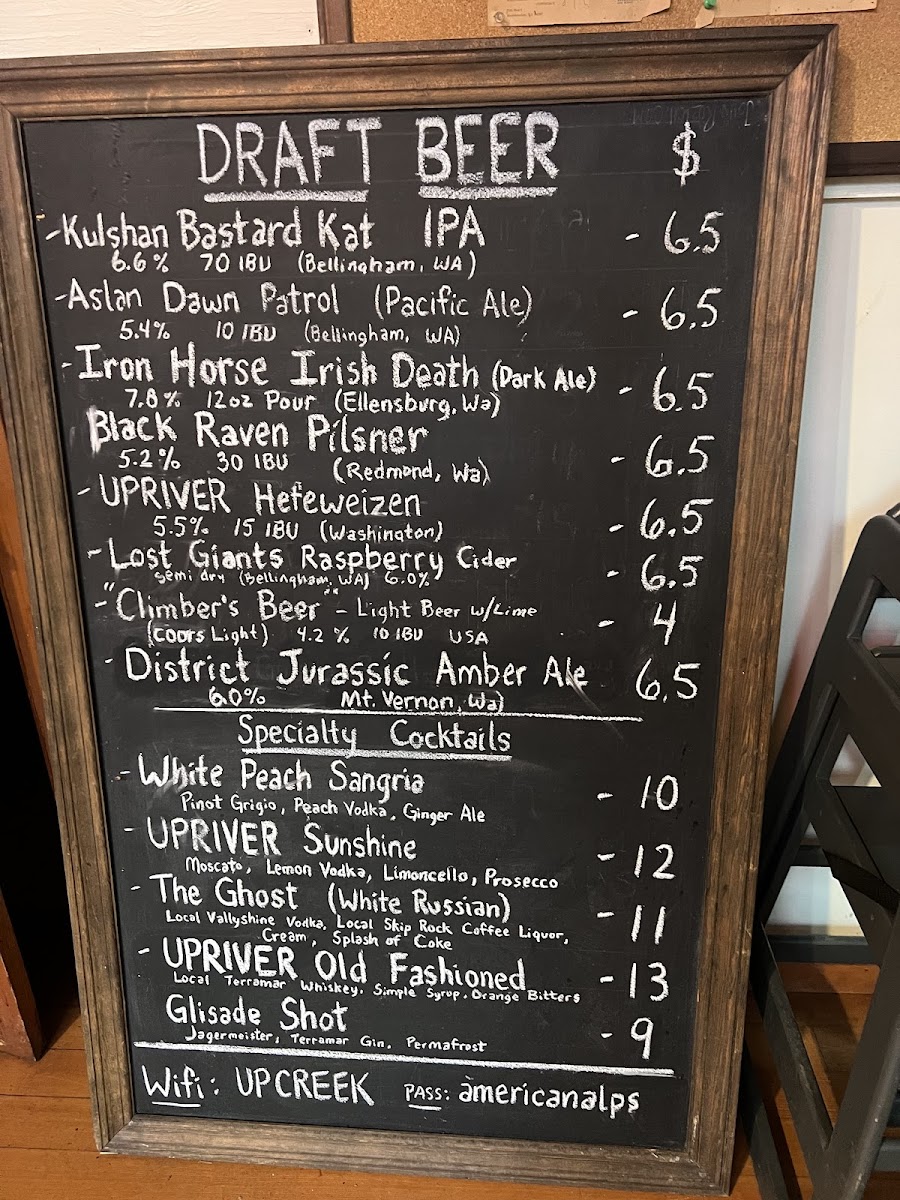 DRAFT BEER $
-Kulshan Bastard Kat IPA - 6.5
6.6% 70 IBU (Bellingham, WA)
-Aslan Dawn Patrol (Pacific Ale) - 6.5
5.4% 10 IBU (Bellingham, WA)
-Iron Horse Irish Death (Dark Ale) - 6.5
7.8% 12oz Pour (Ellensburg, Wa)
Black Raven Pilsner - 6.5
5.2% 30 IBU (Redmond, Wa)
- UPRIVER Hefeweizen - 6.5
5.5% 15 IBU (Washington)
-Lost Giants Raspberry Cider - 6.5
semi dry (Bellingham, WA) 6.0%
-"Climber's Beer" - Light Beer w/Lime - 4
(Coors Light) 4.2% 10 IBU USA
- District Jurassic Amber Ale 6.5
6.0% Mt. Vernon, Wa)
Specialty Cocktails
- White Peach Sangria - 10
Pinot Grigio, Peach Vodka, Ginger Ale
- UPRIVER Sunshine - 12
Moscato, Lemon Vodka, Limoncello, Prosecco
- The Ghost (White Russian) - 11
Local Vallyshine Vodka, Local Skip Rock Coffee Liquor,
Cream, Splash of Coke
- UPRIVER Old Fashioned - 13
Local Terramar Whiskey, Simple Syrup, Orange Bitters
Glisade Shot - 9
Jagermeister, Terramar Gin, Permafrost
Wifi: UPCREEK PASS: americanalps